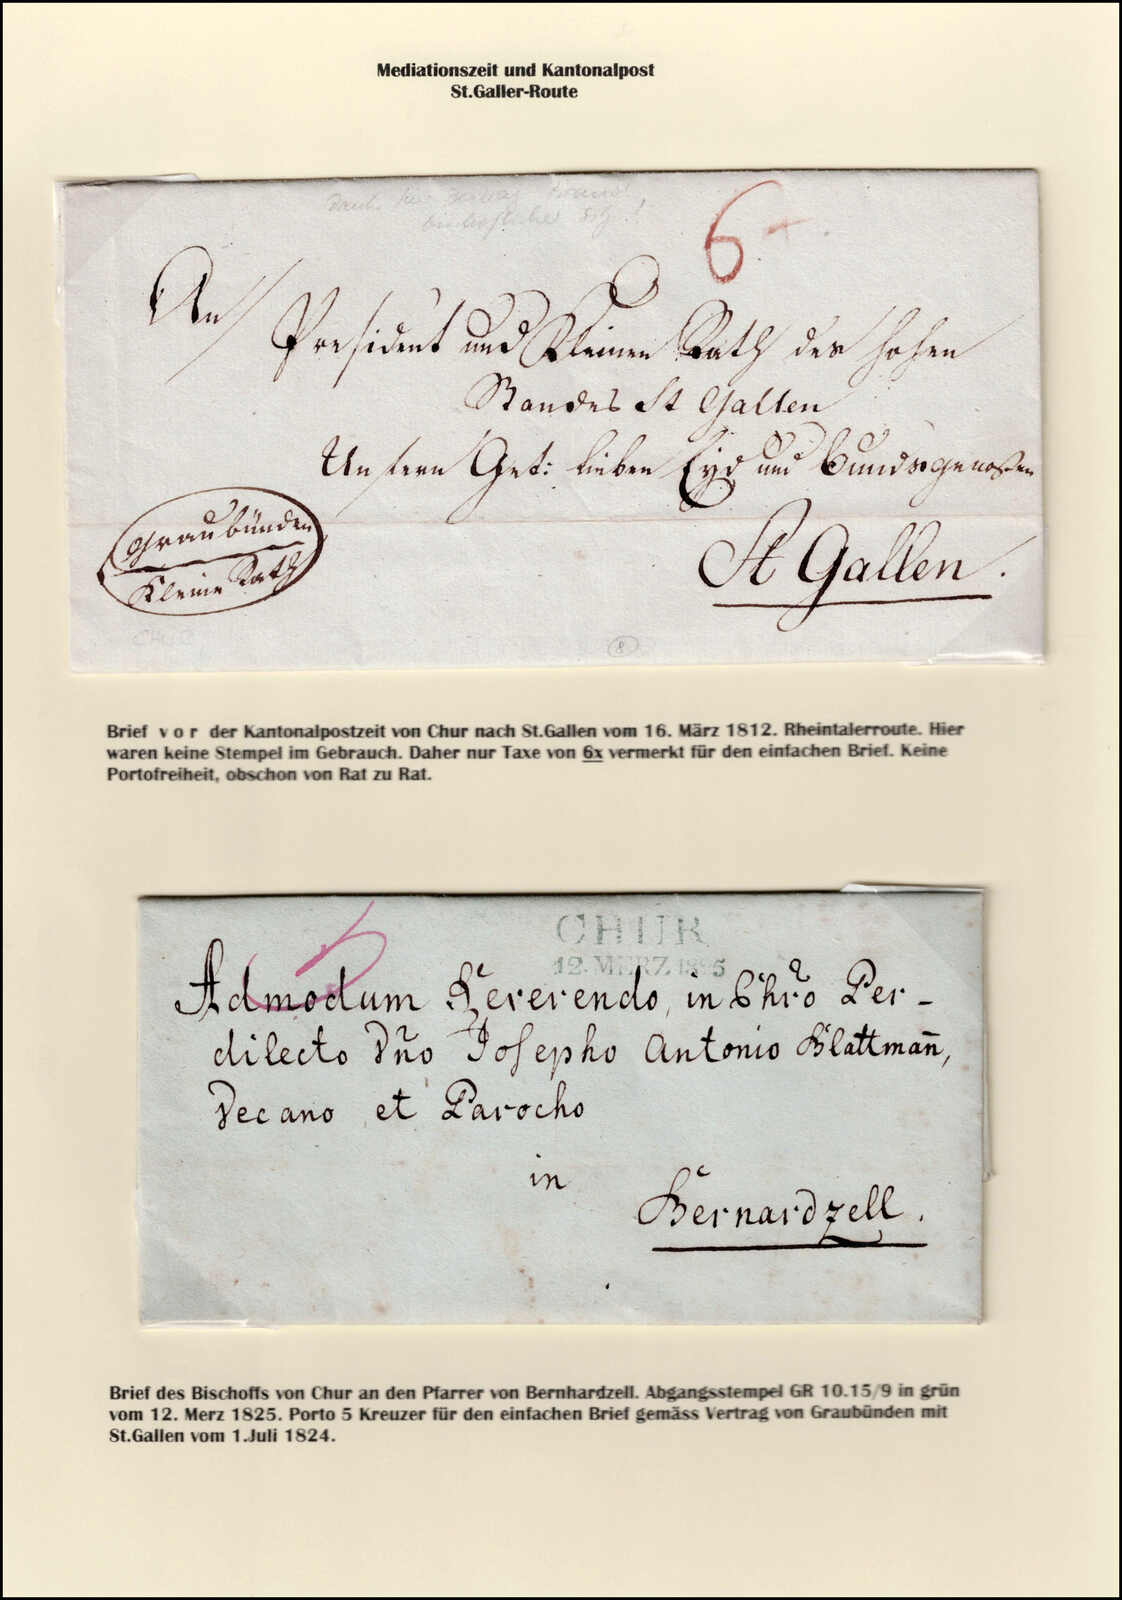 Mediationszeit und Kantonalpost
St.Galler-Route
6
An
President und Kleinen Rath des hohen
Standes St Gallen
Unsern Get: lieben Eyd und Bundsgenoßen
Graubünden
Kleine Rath
St Gallen.
CHUR
8
Brief v o r der Kantonalpostzeit von Chur nach St.Gallen vom 16. März 1812. Rheintalerroute. Hier
waren keine Stempel im Gebrauch. Daher nur Taxe von 6x vermerkt für den einfachen Brief. Keine
Portofreiheit, obschon von Rat zu Rat.
CHUR
12. MERZ 1825
5
Admodum Reverendo, in Chro Per-
dilecto Dño Josepho Antonio Blattmañ,
Decano et Parocho
in
Bernardzell.
Brief des Bischoffs von Chur an den Pfarrer von Bernhardzell. Abgangsstempel GR 10.15/9 in grün
vom 12. Merz 1825. Porto 5 Kreuzer für den einfachen Brief gemäss Vertrag von Graubünden mit
St.Gallen vom 1.Juli 1824.